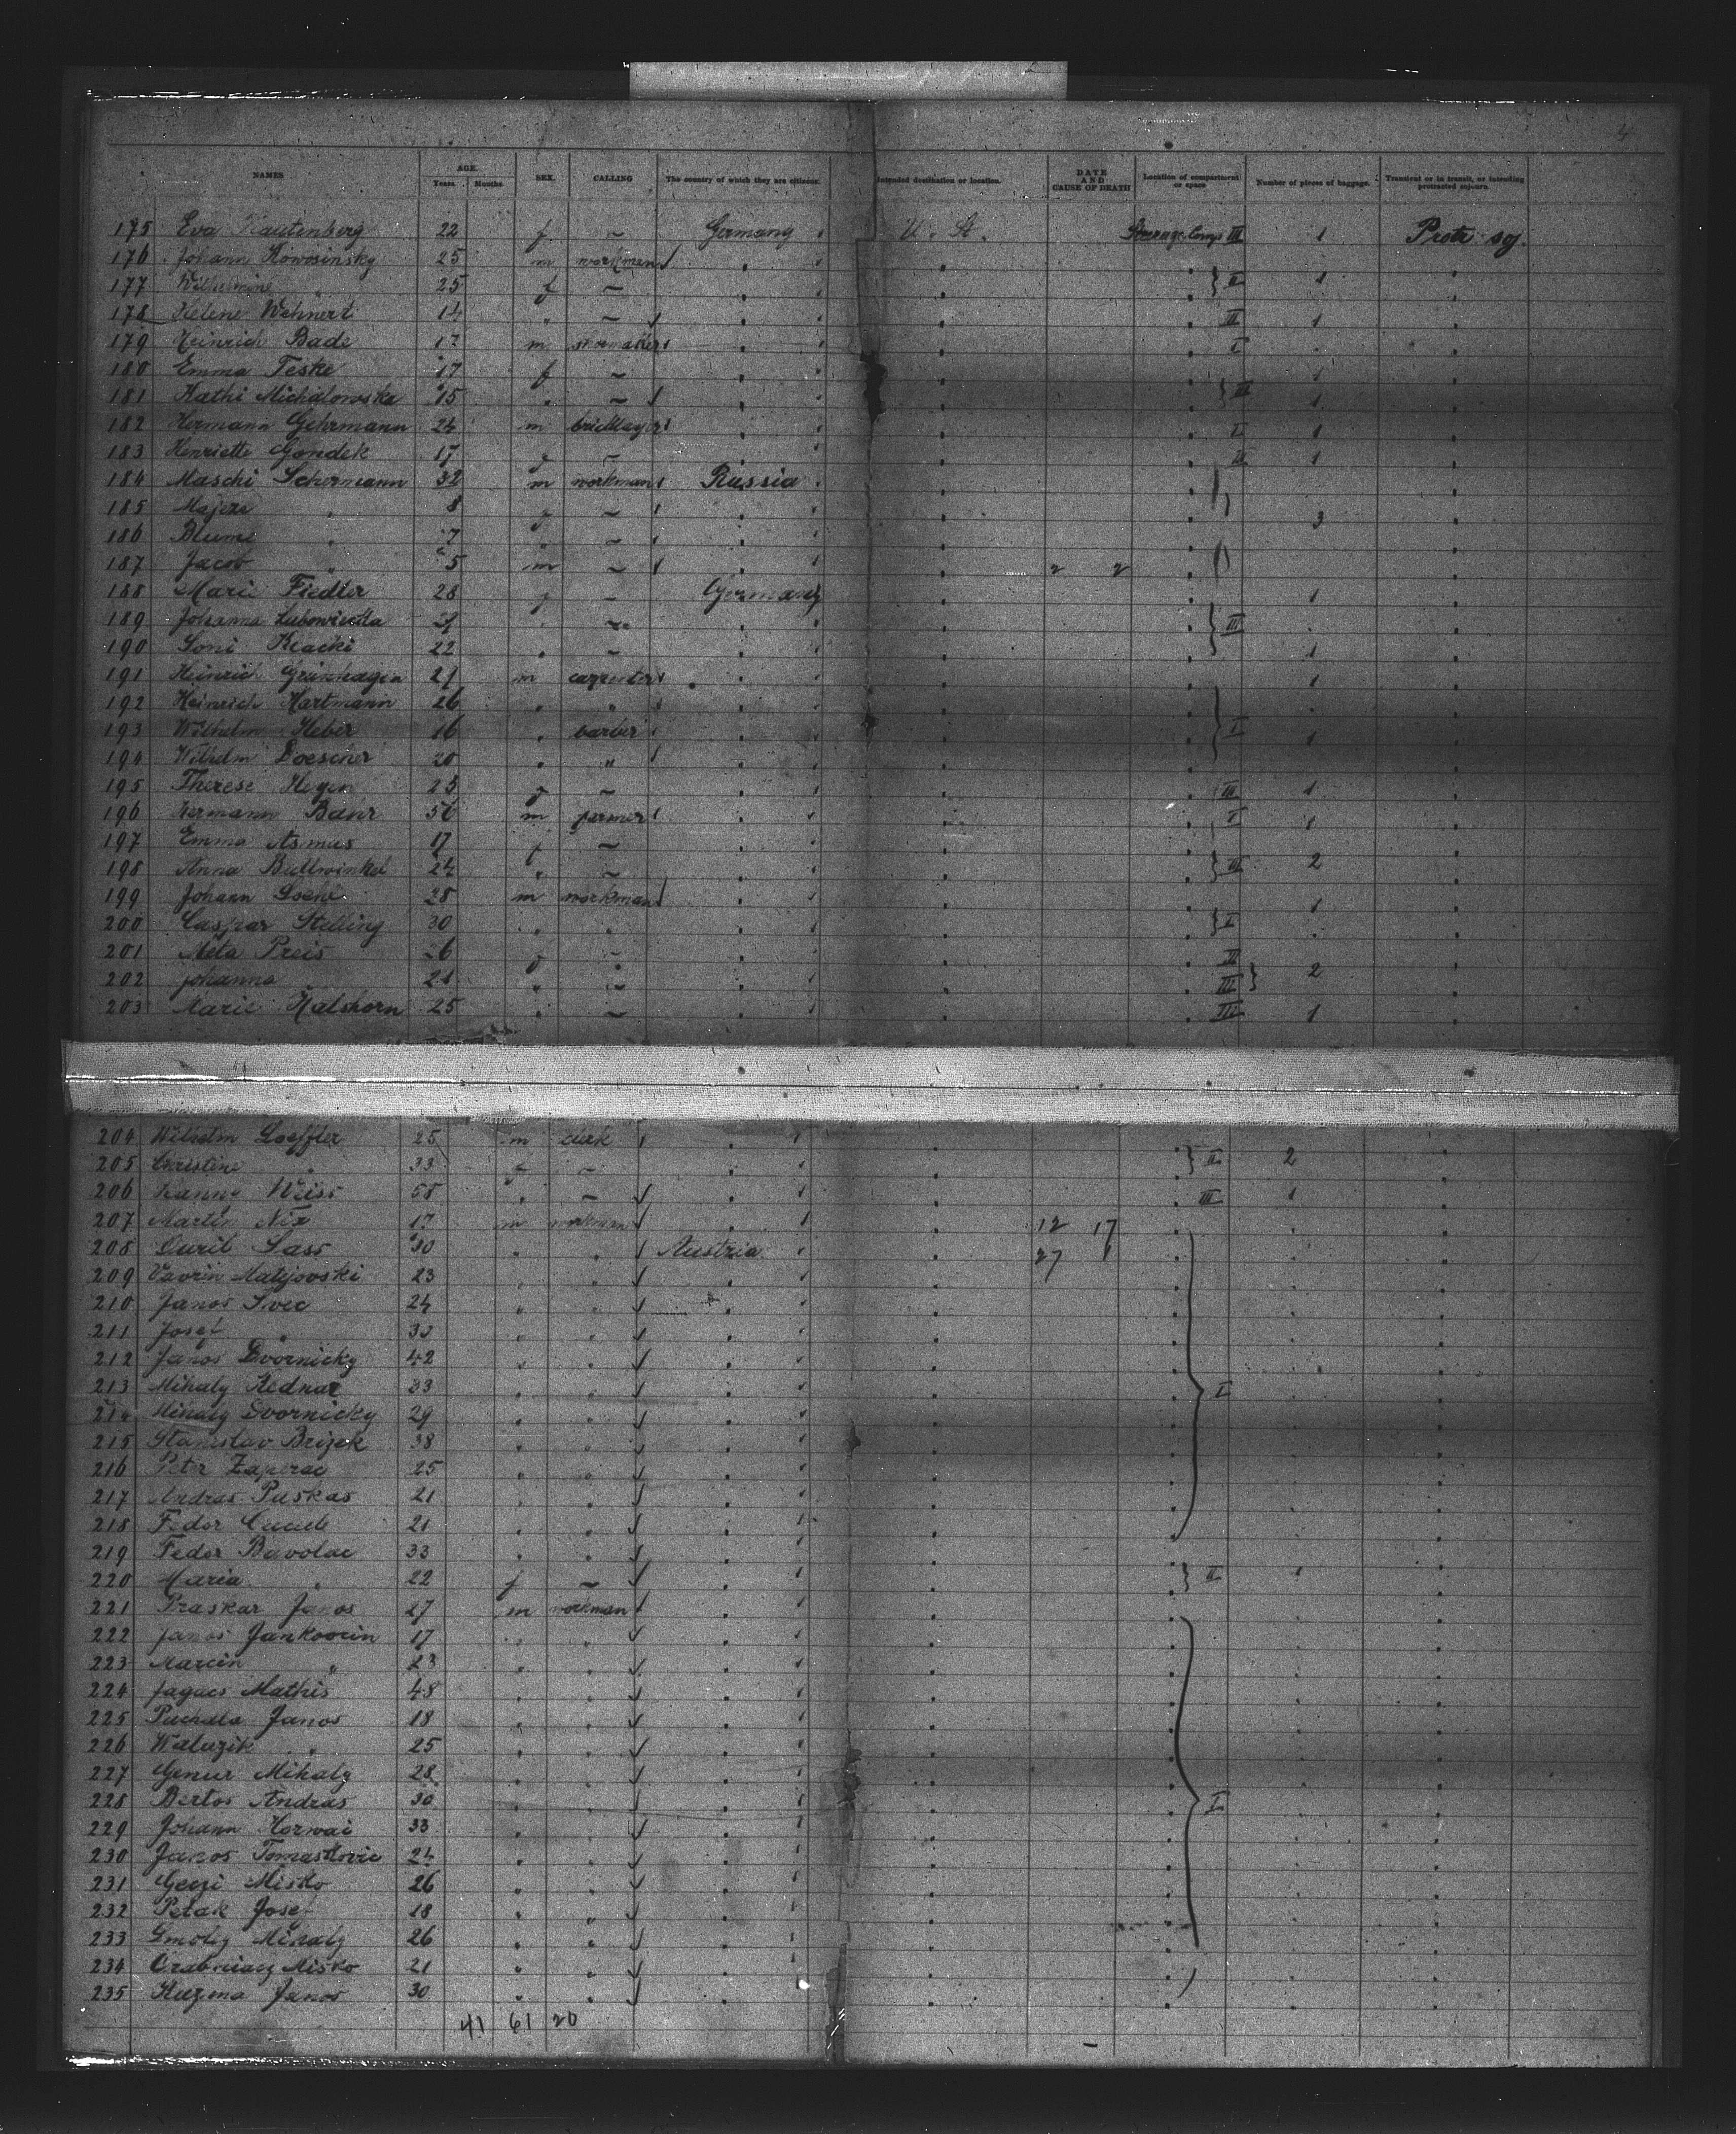 4
NAMES AGE. Years. Months. SEX. CALLING The country of which they are citizens. Intended destination or location. DATE AND CAUSE OF DEATH Location of compartment or space Number of pieces of baggage. Transient or in transit, or intending protracted sojourn.
175 Eva Rautenberg 22 f ~ Germany U. St. Steerage Comp III 1 Protr soj.
176 Johann Kowosinsky 25 m workman
177 Wilhelmine " 25 f ~ II 1
178 Helene Wehnert 14 " ~ III 1
179 Heinrich Bade m shoemaker I
180 Emma Teske 17 f ~ 1
181 Kathi Michalowska 15 " ~ III 1
182 Hermann Gehrmann 24 m bricklayer I 1
183 Henriette Gondek 17 f ~ 1
184 Maschi Schermann 32 m workman Russia
185 Majere " 8 f ~ 3
186 Blume " 7 " ~
187 Jacob " 5 m ~ 2 2
188 Marie Fiedler 28 f ~ Germany 1
189 Johanna " ~ III
190 22 " ~ 1
191 Heinrich Grünhagen 21 m carpenter 1
192 Heinrich Hartmann 26 " "
193 Wilhelm Heber 16 " barber I 1
194 Wilhelm Doescher 20 " "
195 Therese Hegen 23 f ~ III 1
196 Hermann Bahr m farmer I 1
197 Emma Asmus 17 f ~
198 Anna Bullwinkel 24 " ~ III 2
199 Johann 28 m workman 1
200 Caspar Stelling 30 " " I
201 Meta Preis 26 f ~ III
202 Johanna 21 " ~ III 2
203 Marie Halshorn 25 " ~ III 1
204 Wilhelm Loeffler 25 m clerk
205 Christine " 33 f ~ II 2
206 Weiss 58 " ~ III 1
207 Martin Nix 17 m workman 12 17
208 Sass 30 " " Austria 27 1
209 Vavrin Matijovski 23 " "
210 Janos Ivec 24 " "
211 Josef " " "
212 Janos Dvornicky 42 " "
213 Mihaly Bednar 33 " " I
214 Mihaly Dvornicky 29 " "
215 Stanislav Brizek 38 " "
216 Peter Zaperac 25 " "
217 Andras Puskas 21 " "
218 Fedor 21 " "
219 Fedor Bavolac 33 " "
220 Maria " 22 f ~ II
221 Praskar Janos 27 m workman
222 Janos Jankovcin 17 " "
223 Marcin " 23 " "
224 Jagacs Mathis 48 " "
225 Puchala Janos 18 " "
226 Waluzik " 25 " "
227 Genur Mihaly 28 " "
228 Bertos Andras 30 " " I
229 Johann Horwai 33 " "
230 Janos Tomaskovic 24 " "
231 Misko 26 " "
232 Petak Josef 18 " "
233 Smoly Mihaly 26 " "
234 Misko 21 " "
235 Kuzma Janos 30 " "
41 61 20